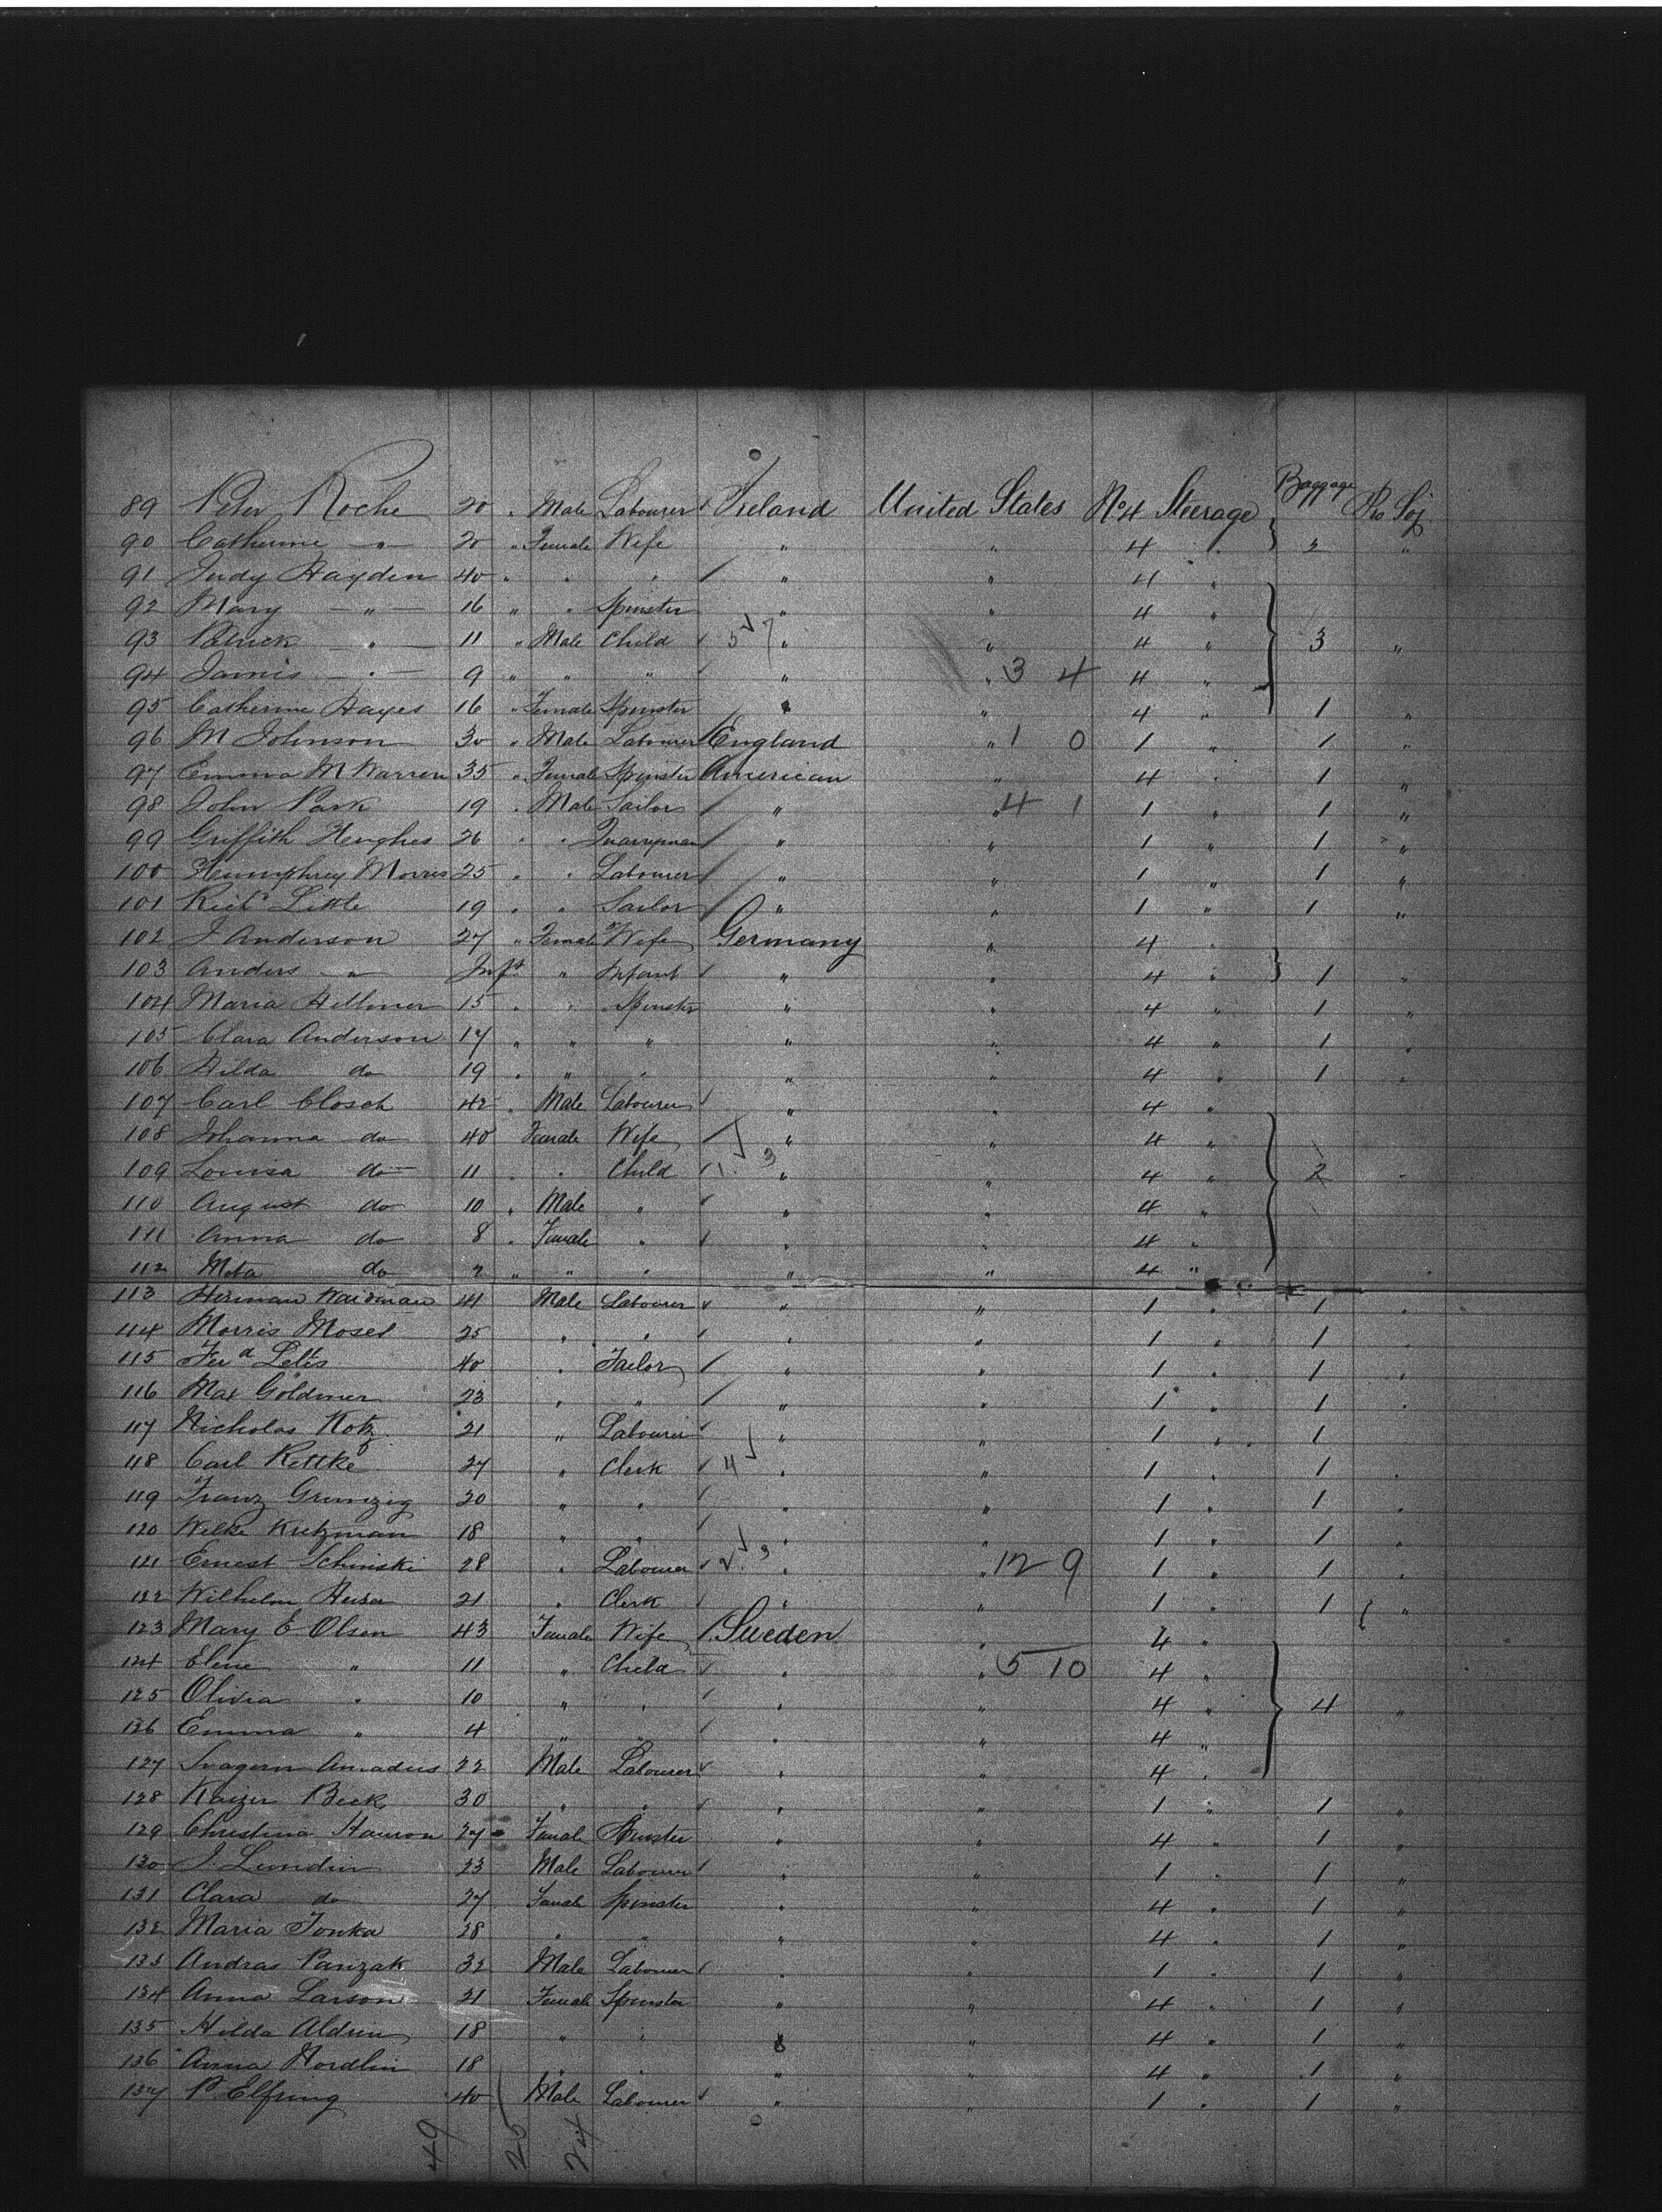 Baggage
89 Peter Roche 20 " Male Labourer Ireland United States No 4 Steerage Pro Soj
90 Catherine " 20 " Female Wife " " 4 " 2 "
91 Judy Hayden 40 " " " " " 4 "
92 Mary " 16 " " Spinster " " 4 "
93 Patrick " 11 " Male Child 5 7 " " 4 " 3 "
94 James " 9 " " " " " 3 4 4 "
95 Catherine Hayes 16 " Female Spinster " " 4 " 1 "
96 M Johnson 30 " Male Labourer England " 1 0 1 " 1 "
97 Emma M Warren 35 " Female Spinster American " 4 " 1 "
98 John Park 19 " Male Sailor " " 4 1 1 " 1 "
99 Griffith Heughes 26 " " Quarryman " " 1 " 1 "
100 Humphrey Morris 25 " " Labourer " " 1 " 1 "
101 Richd Little 19 " " Sailor " " 1 " 1 "
102 J Anderson 27 " Female Wife Germany " 4 "
103 Anders " Inft " Infant " " 4 " 1 "
104 Maria Hellmer 15 " " Spinster " " 4 " 1 "
105 Clara Anderson 17 " " " " " 4 " 1 "
106 Hilda do 19 " " " " " 4 " 1 "
107 Carl Closch 42 " Male Labourer " " 4 "
108 Johanna do 40 Female Wife " " 4 "
109 Louisa do 11 " " Child 1 3 " " 4 " 2 "
110 August do 10 " Male " " " 4 "
111 Anna do 8 " Female " " " 4 "
112 Meta do " " " " " 4 "
113 Herman 41 Male Labourer " " 1 " 1 "
114 Morris Mosel 25 " " " " 1 " 1 "
115 Ferd 40 " Tailor " " 1 " 1 "
116 Max Goldmer 23 " " " " 1 " 1 "
117 Nicholas Kotz 21 " Labourer " " 1 " 1 "
118 Carl Rettke 27 " Clerk 4 " " 1 " 1 "
119 Franz Grunzig 20 " " " " 1 " 1 "
120 Wilke Kutzman 18 " " " " 1 " 1 "
121 Ernest Schinski 28 " Labourer 2 3 " " 12 9 1 " 1 "
122 Wilhelm 21 " Clerk " " 1 " 1 "
123 Mary E. Olsen 43 Female Wife Sweden " 4 "
124 Eline " 11 " Child " " 5 10 4 "
125 Olivia " 10 " " " " 4 " 4 "
126 Emma " 4 " " " " 4 "
127 Amadeus 22 Male Labourer " " 4 "
128 Kaizer Beck 30 " " " " 1 " 1 "
129 Christina 27 Female Spinster " " 4 " 1 "
130 J. Lundin 23 Male Labourer " " 1 " 1 "
131 Clara do 27 Female Spinster " " 4 " 1 "
132 Maria Tonka 28 " " " " 4 " 1 "
133 Andras Parizak 32 Male Labourer " " 1 " 1 "
134 Anna Larson 21 Female Spinster " " 4 " 1 "
135 Hilda Aldrin 18 " " " " 4 " 1 "
136 Anna Nordlin 18 " " " " 4 " 1 "
137 P. Elfring 40 Male Labourer " " 1 " 1 "
49 25 24